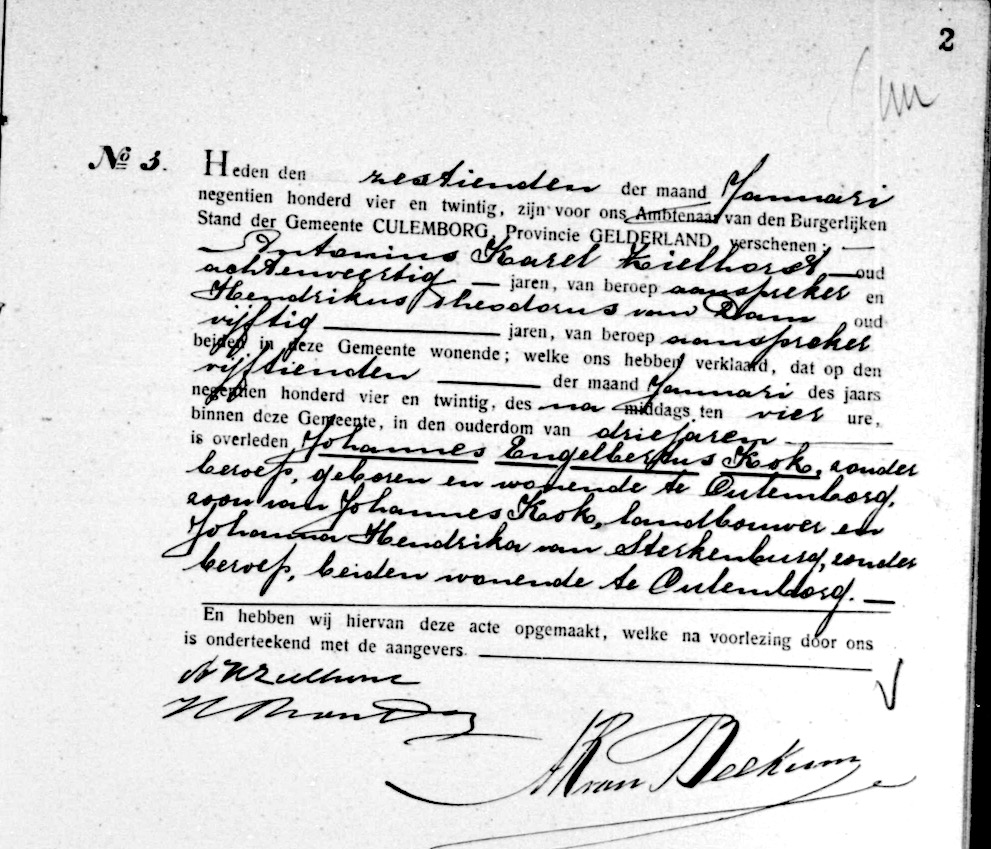 2
No 3.
Heden den zestienden der maand Januari
negentien honderd vier en twintig, zijn voor ons Ambtenaar van den Burgerlijken
Stand der Gemeente CULEMBORG, Provincie GELDERLAND verschenen:
Antonius Karel Zielhorst oud
achtenveertig jaren, van beroep aanspreker en
Hendrikus Theodorus van Dam oud
vijftig jaren, van beroep aanspreker
beiden in deze Gemeente wonende; welke ons hebben verklaard, dat op den
vijftienden der maand Januari des jaars
negentien honderd vier en twintig, des na middags ten vier ure,
binnen deze Gemeente, in den ouderdom van drie jaren
is overleden Johannes Engelbertus Kok, zonder
beroep, geboren en wonende te Culemborg,
zoon van Johannes Kok, landbouwer en
Johanna Hendrika van Sterkenburg, zonder
beroep, beiden wonende te Culemborg.
En hebben wij hiervan deze acte opgemaakt, welke na voorlezing door ons
is onderteekend met de aangevers.
A K Zielhorst
H Th van Dam
van Beekum